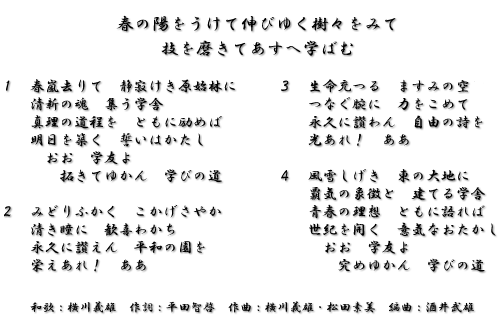 春の陽をうけて伸びゆく樹々をみて
技を磨きてあすへ学ばむ
1 春嵐去りて 静寂けき原始林に
清新の魂 集う学舎
真理の道程を ともに励めば
明日を築く 誓いはかたし
おお 学友よ
拓きてゆかん 学びの道
2 みどりふかく こかげさやか
清き瞳に 歓喜わかち
永久に讃えん 平和の園を
栄えあれ! ああ
3 生命充つる ますみの空
つなぐ腕に 力をこめて
永久に讃わん 自由の詩を
光あれ! ああ
4 風雪しげき 東の大地に
覇気の象徴と 建てる学舎
青春の理想 ともに語れば
世紀を開く 意気なおたかし
おお 学友よ
究めゆかん 学びの道
和歌:横川義雄 作詞:平田智啓 作曲:横川義雄・松田素美 編曲:酒井武雄